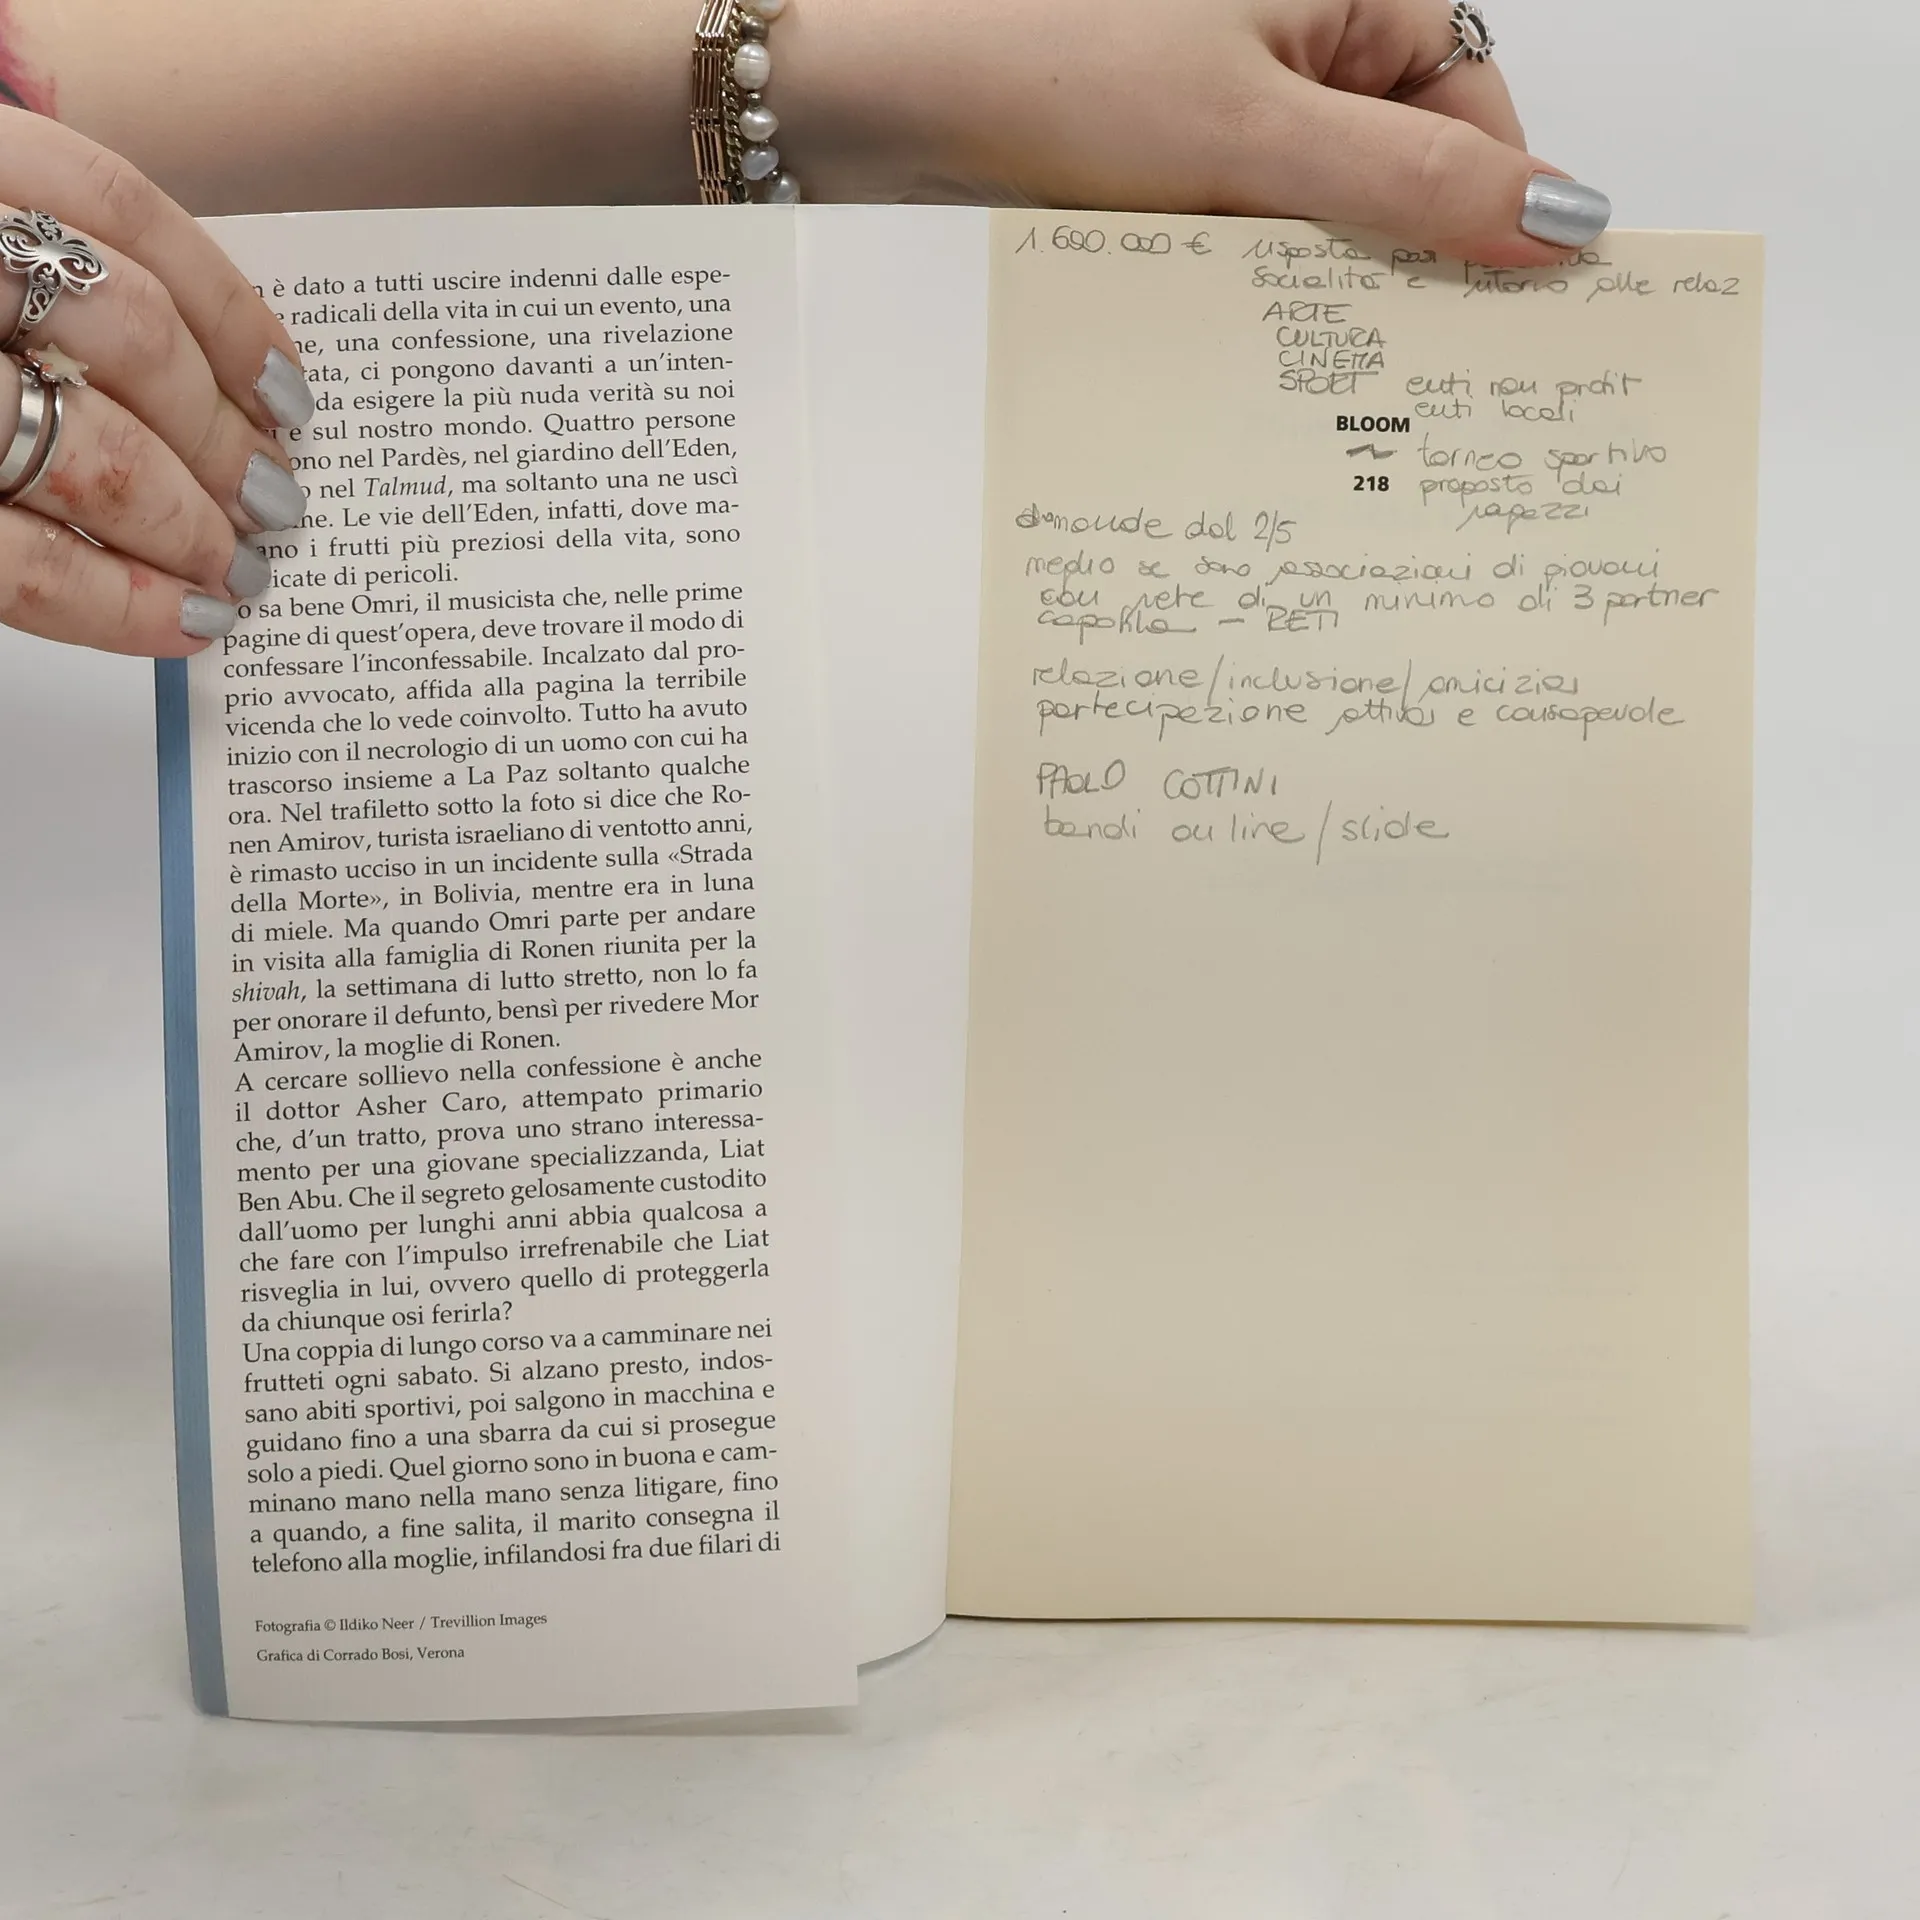 è dato a tutti uscire indenni dalle espe-
radicali della vita in cui un evento, una
una confessione, una rivelazione
ci pongono davanti a un'inten-
da esigere la più nuda verità su noi
e sul nostro mondo. Quattro persone
nel Pardès, nel giardino dell'Eden,
nel Talmud, ma soltanto una ne uscì
Le vie dell'Eden, infatti, dove ma-
i frutti più preziosi della vita, sono
di pericoli.
sa bene Omri, il musicista che, nelle prime
pagine di quest'opera, deve trovare il modo di
confessare l'inconfessabile. Incalzato dal pro-
prio avvocato, affida alla pagina la terribile
vicenda che lo vede coinvolto. Tutto ha avuto
inizio con il necrologio di un uomo con cui ha
trascorso insieme a La Paz soltanto qualche
ora. Nel trafiletto sotto la foto si dice che Ro-
nen Amirov, turista israeliano di ventotto anni,
è rimasto ucciso in un incidente sulla «Strada
della Morte», in Bolivia, mentre era in luna
di miele. Ma quando Omri parte per andare
in visita alla famiglia di Ronen riunita per la
shivah, la settimana di lutto stretto, non lo fa
per onorare il defunto, bensì per rivedere Mor
Amirov, la moglie di Ronen.
A cercare sollievo nella confessione è anche
il dottor Asher Caro, attempato primario
che, d'un tratto, prova uno strano interessa-
mento per una giovane specializzanda, Liat
Ben Abu. Che il segreto gelosamente custodito
dall'uomo per lunghi anni abbia qualcosa a
che fare con l'impulso irrefrenabile che Liat
risveglia in lui, ovvero quello di proteggerla
da chiunque osi ferirla?
Una coppia di lungo corso va a camminare nei
frutteti ogni sabato. Si alzano presto, indos-
sano abiti sportivi, poi salgono in macchina e
guidano fino a una sbarra da cui si prosegue
solo a piedi. Quel giorno sono in buona e cam-
minano mano nella mano senza litigare, fino
a quando, a fine salita, il marito consegna il
telefono alla moglie, infilandosi fra due filari di
Fotografia © Ildiko Neer / Trevillion Images
Grafica di Corrado Bosi, Verona
1.600.000 € risposta per
socialità e ritorno alle relaz
ARTE
CULTURA
CINEMA
SPORT enti non profit
enti locali
BLOOM
torneo sportivo
218 proposto dai
ragazzi
domande dal 2/5
meglio se sono associazioni di giovani
con rete di un minimo di 3 partner
capofila - RETI
relazione/inclusione/amicizia
partecipazione attiva e consapevole
PAOLO COTTINI
bandi on line / slide